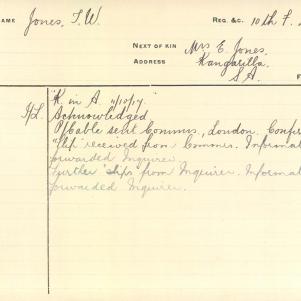 NAME Jones, T.W. REG. &C. 10th F.
NEXT OF KIN Mrs E. Jones,
ADDRESS Kangarilla,
S.A.
"K. in A. 4/10/17."
Acknowledged
Cable sent Comms., London. Confir
"Slip" received from Commrs. Informat
forwarded Inquirer.
Further "slips" from Inquirer. Informat
forwarded Inquirer.